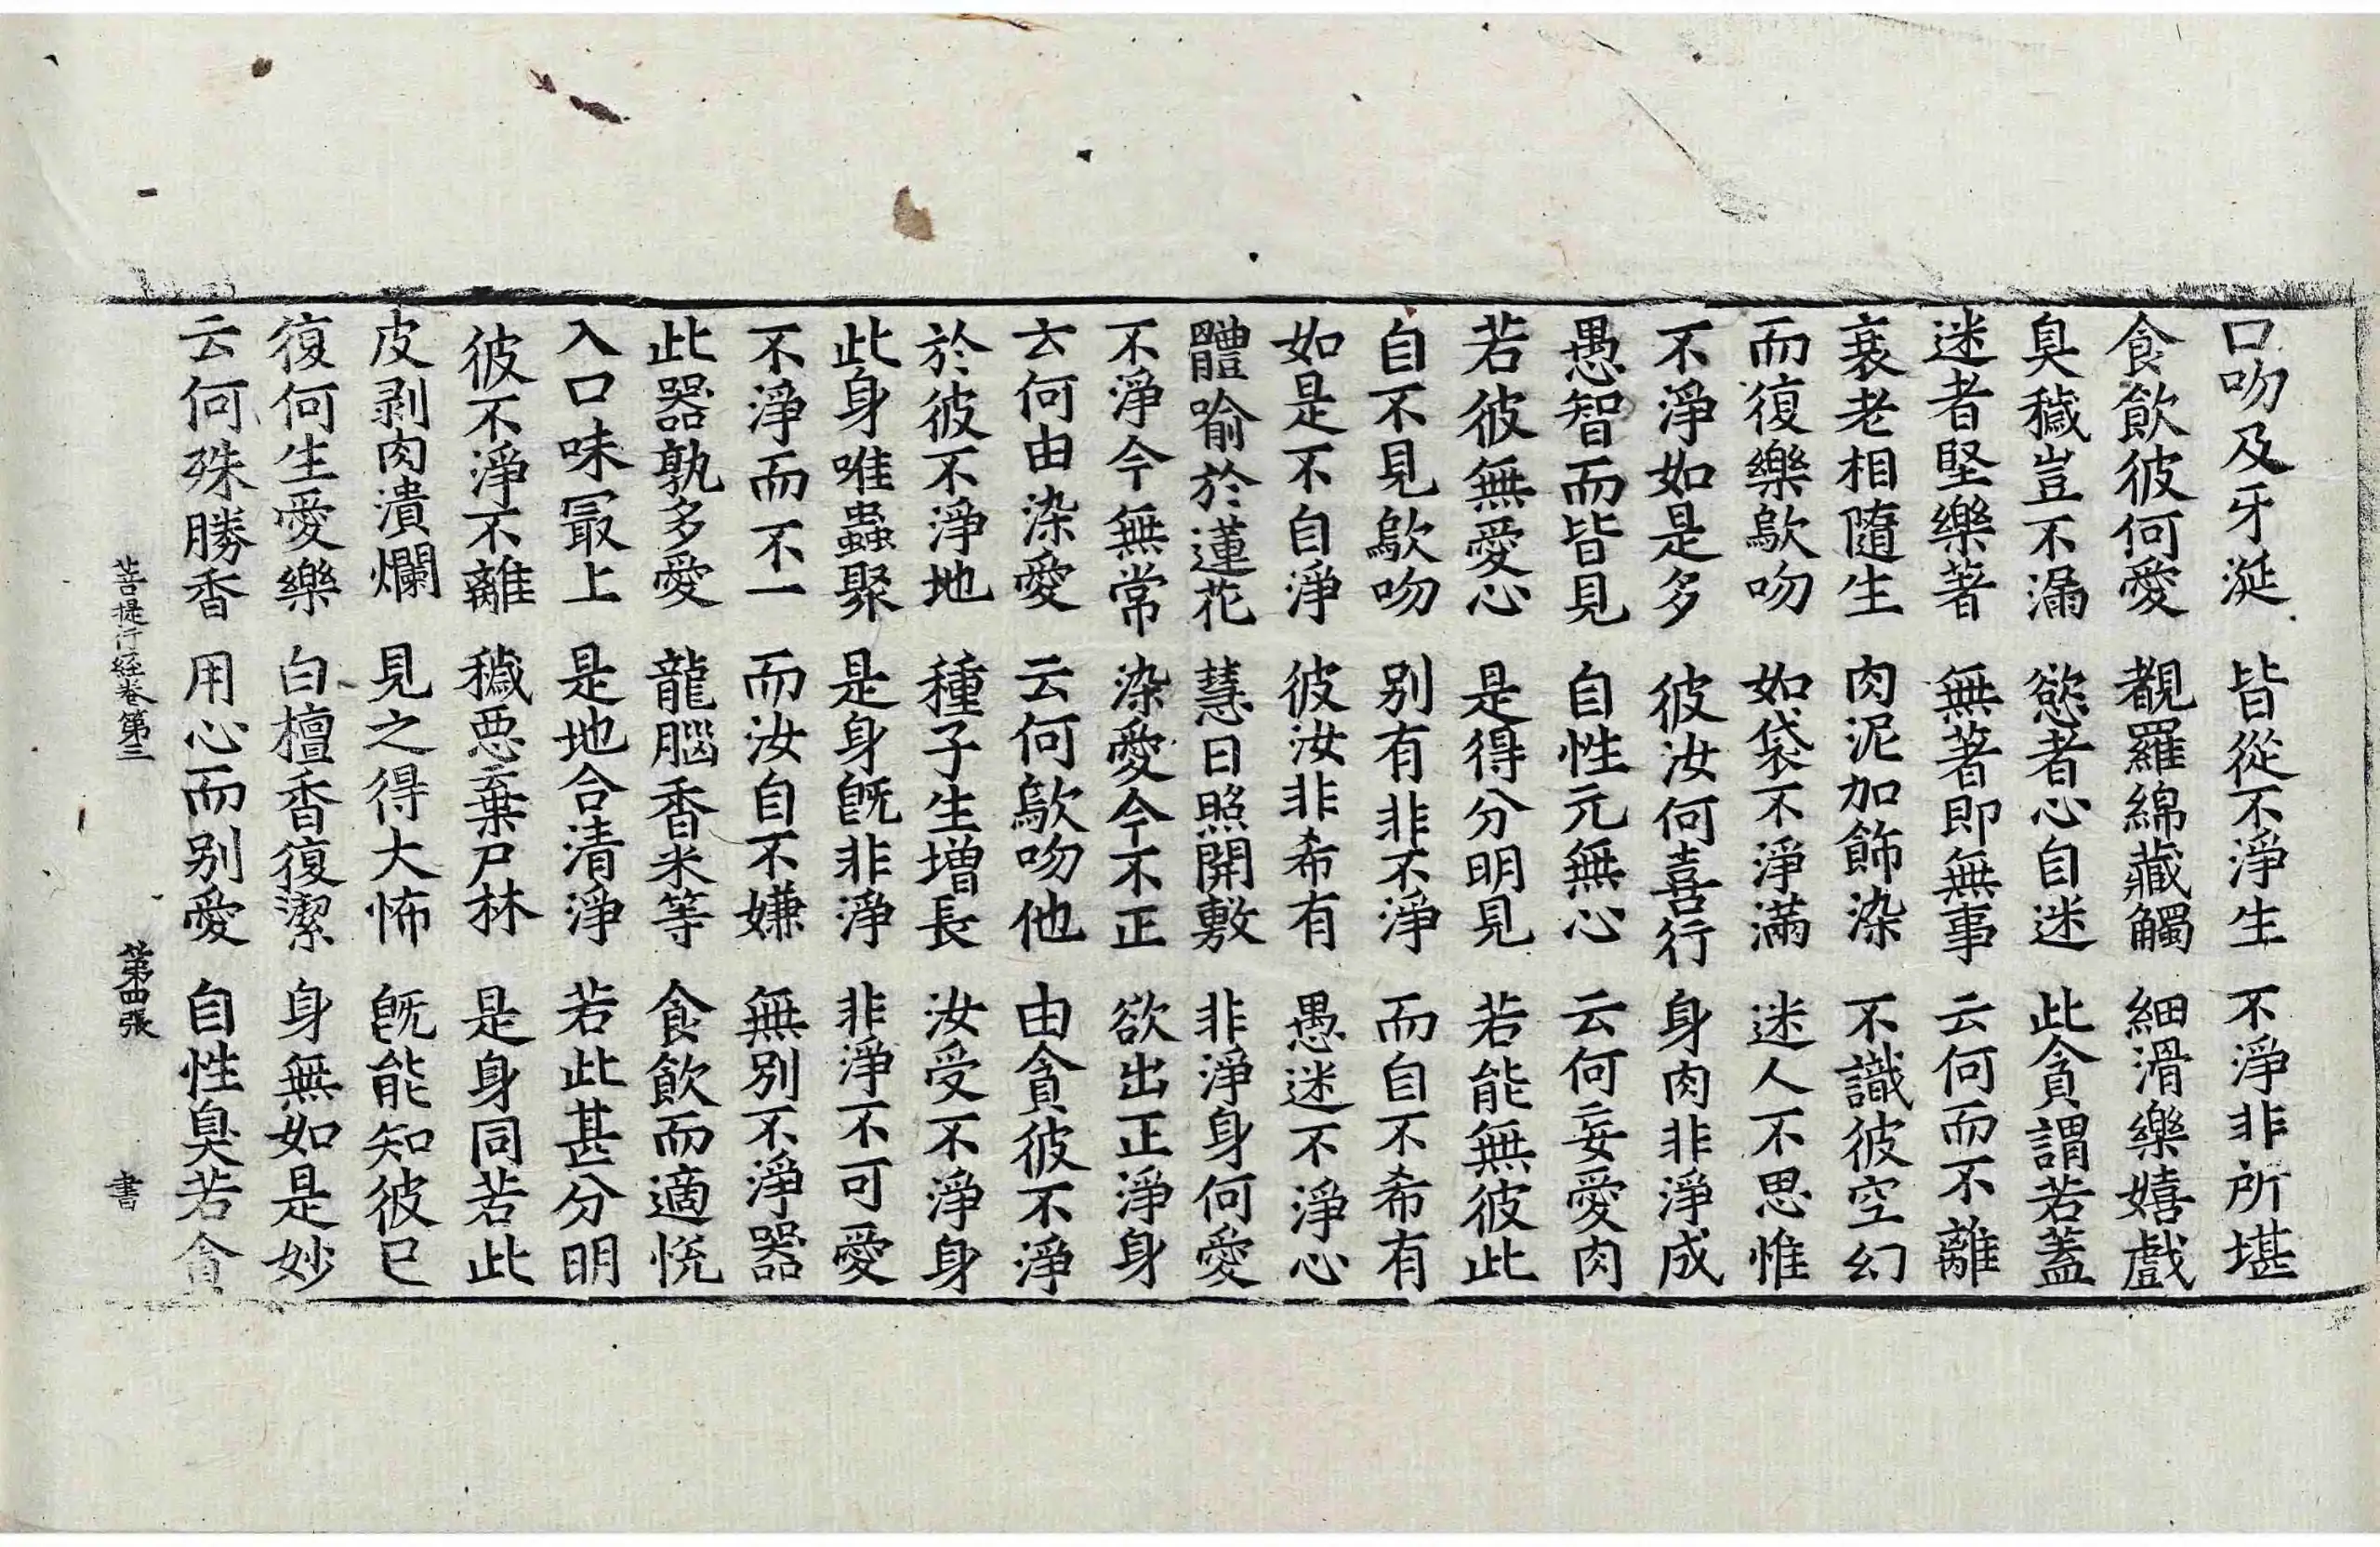 口吻及牙涎 皆從不淨生 不淨非所堪
食飲彼何愛 覩羅綿藏觸 細滑樂嬉戲
臭穢豈不漏 慾者心自迷 此貪謂若蓋
迷者堅樂著 無著即無事 云何而不離
衰老相隨生 肉泥加飾染 不識彼空幻
而復樂歍吻 如袋不淨滿 迷人不思惟
不淨如是多 彼汝何喜行 身肉非淨成
愚智而皆見 自性元無心 云何妄愛肉
若彼無愛心 是得分明見 若能無彼此
自不見歍吻 別有非不淨 而自不希有
如是不自淨 彼汝非希有 愚迷不淨心
體喻於蓮花 慧日照開敷 非淨身何愛
不淨今無常 染愛今不正 欲出正淨身
云何由染愛 云何歍吻他 由貪彼不淨
於彼不淨地 種子生增長 汝受不淨身
此身唯蟲聚 是身旣非淨 非淨不可愛
不淨而不一 而汝自不嫌 無別不淨器
此器孰多愛 龍腦香米等 食飲而適悅
入口味冣上 是地合清淨 若此甚分明
彼不淨不離 穢惡棄尸林 是身同若此
皮剥肉潰爛 見之得大怖 旣能知彼已
復何生愛樂 白檀香復潔 身無如是妙
云何殊勝香 用心而別愛 自性臭若貪
菩提行經卷第三 第四張 書